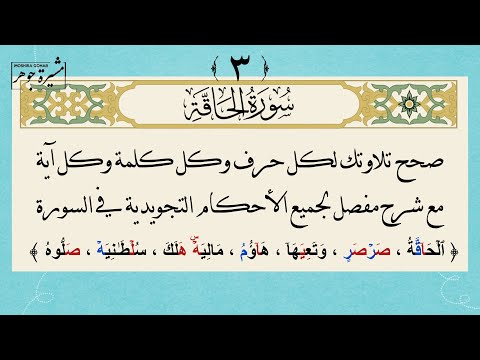 MOSHIRA GOHAR
مشيرة جوهر
﴿ ٣ ﴾
سُورَةُ الحَاقَّةِ
صحح تلاوتك لكل حرف وكل كلمة وكل آية
مع شرح مفصل لجميع الأحكام التجويدية في السورة
﴿ ٱلْحَآقَّةُ ، صَرْصَرٍ ، وَتَعِيَهَآ ، هَآؤُمُ ، مَالِيَهْۜ هَلَكَ ، سُلْطَٰنِيَهْ ، صَلُّوهُ ﴾